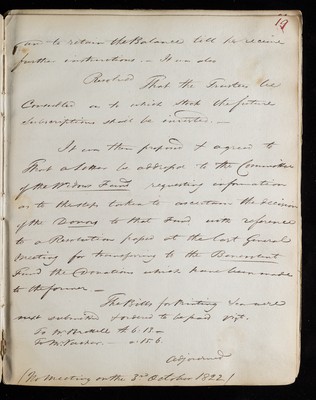 19
and to retain the Balance till he receive
further instructions. — It was also
Resolved That the Trustees be
Consulted as to which Stock the future
Subscriptions shall be invested. —
It was then proposed & agreed to
That a Letter be addressed to the Committee
of the Widows Fund requesting information
as to the steps taken to ascertain the decision
of the Donors to that Fund with reference
to a Resolution passed at the last General
Meeting for transferring to the Benevolent
Fund the Donations which have been made
to the former —
The Bills for Printing &c were
next submitted & ordered to be paid viz.
To Mr £6. 13 —
To Mr — . 15. 6.
Adjourned
(No Meeting on the 3rd October 1822)